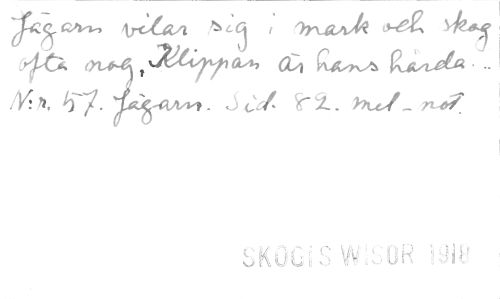 Jägarn vilar sig i mark och skog
ofta nog, Klippan är hans hårda...
N:r. 57. Jägarn. Sid. 82. mel-not.
SKOGIS WISOR 1918